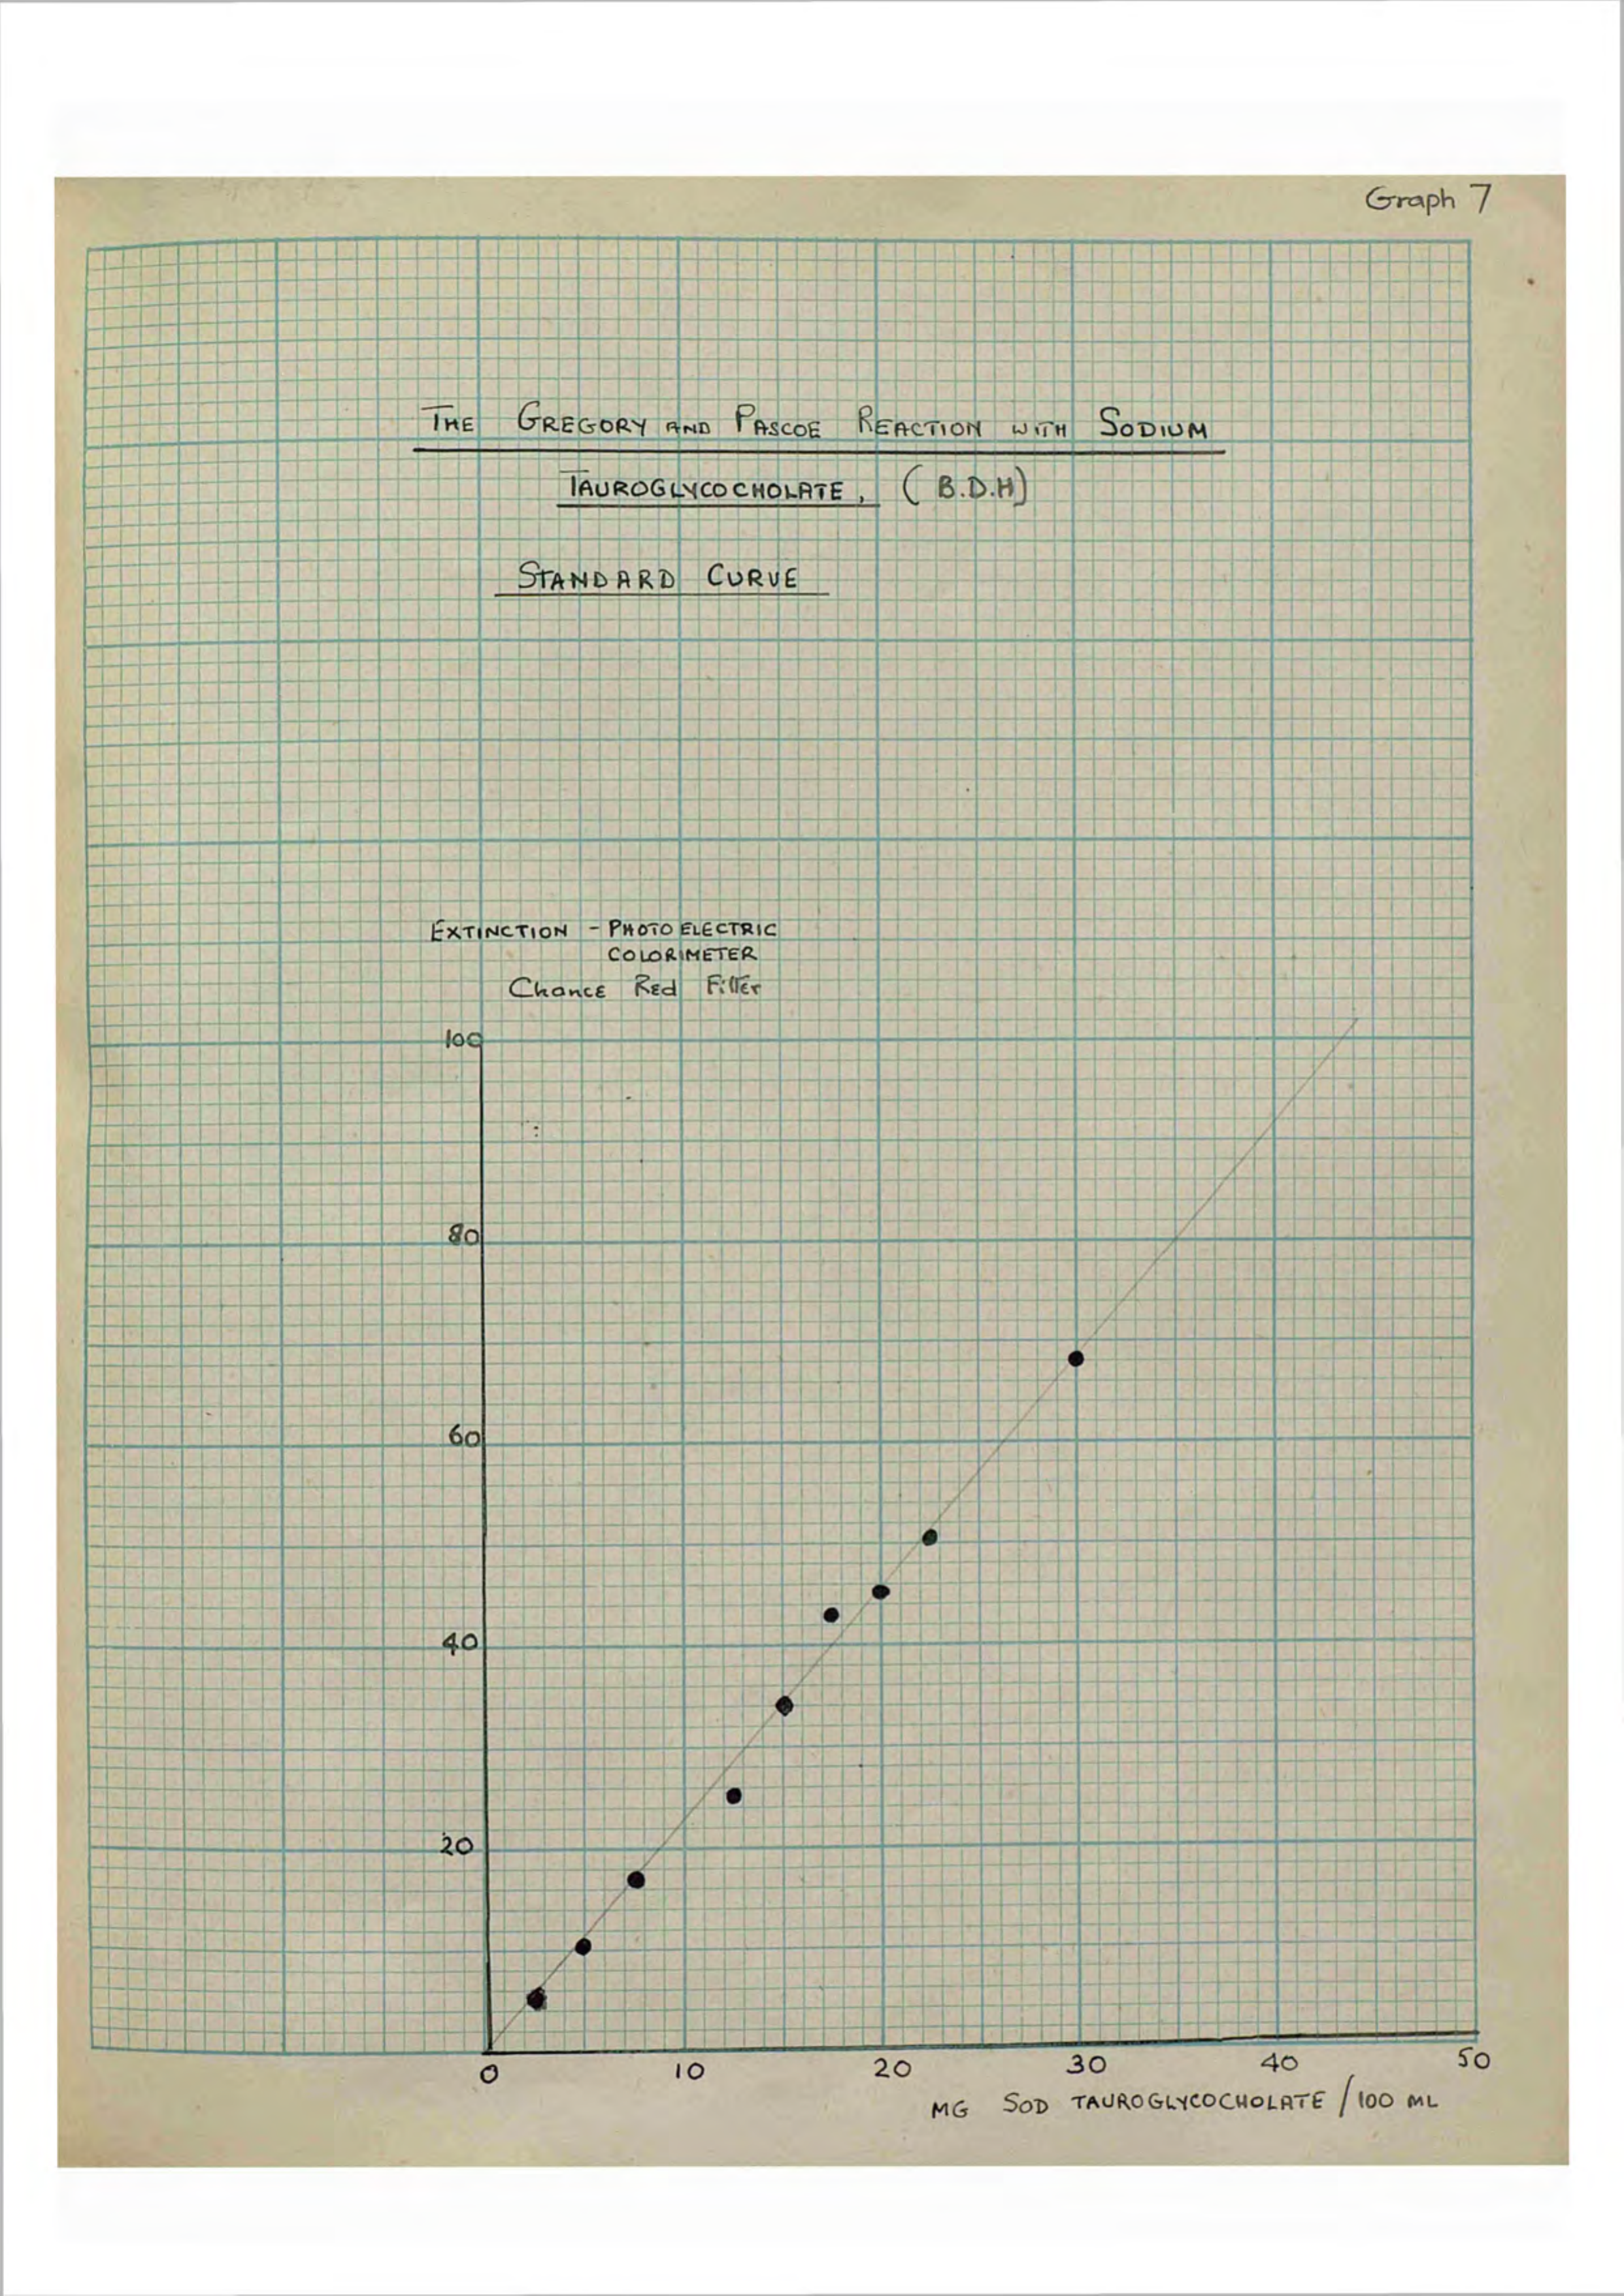 Graph 7
THE GREGORY AND PASCOE REACTION WITH SODIUM
TAUROGLYCOCHOLATE, (B.D.H)
STANDARD CURVE
EXTINCTION - PHOTO ELECTRIC
COLORIMETER
Chance Red Filter
100
80
60
40
20
0 10 20 30 40 50
MG SOD TAUROGLYCOCHOLATE / 100 ML